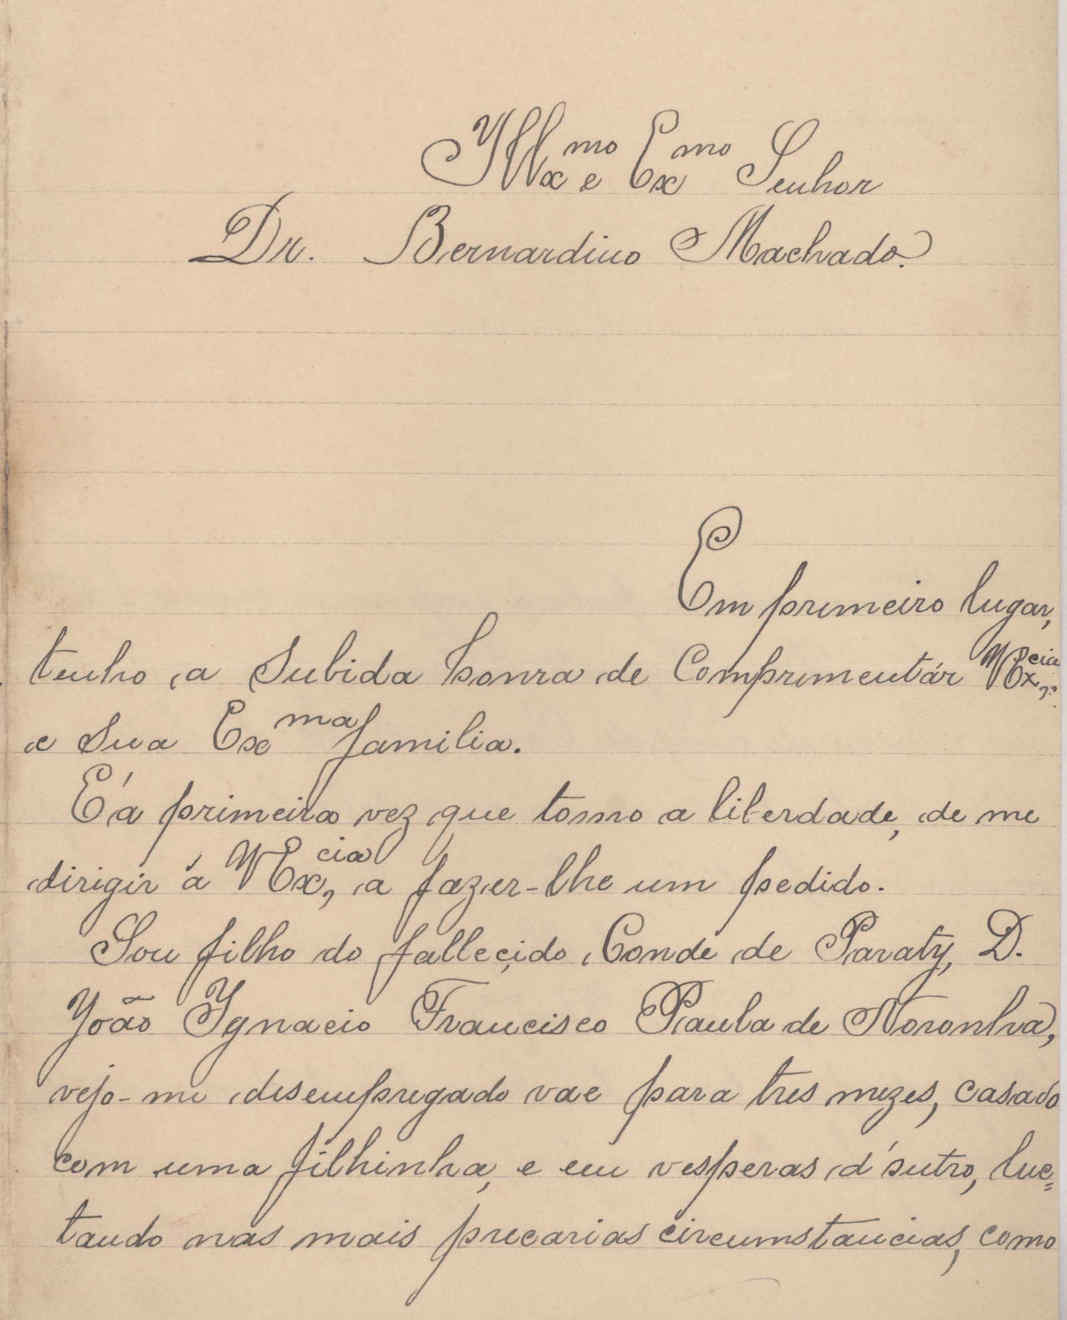 Illmo e Exmo Senhor
Dr. Bernardino Machado.
Em primeiro lugar,
tenho a subida honra de Comprimentár VExcia,
e sua Exma familia.
É a primeira vez que tomo a liberdade, de me
dirigir á VExcia, a fazer-lhe um pedido.
Sou filho do falleçido Conde de Paraty, D.
João Ignacio Francisco Paula de Noronha,
vejo-me desempregado vae para tres mezes, casado
com uma filhinha, e em vesperas d'outro, luc=
tando nas mais precarias circumstancias, como